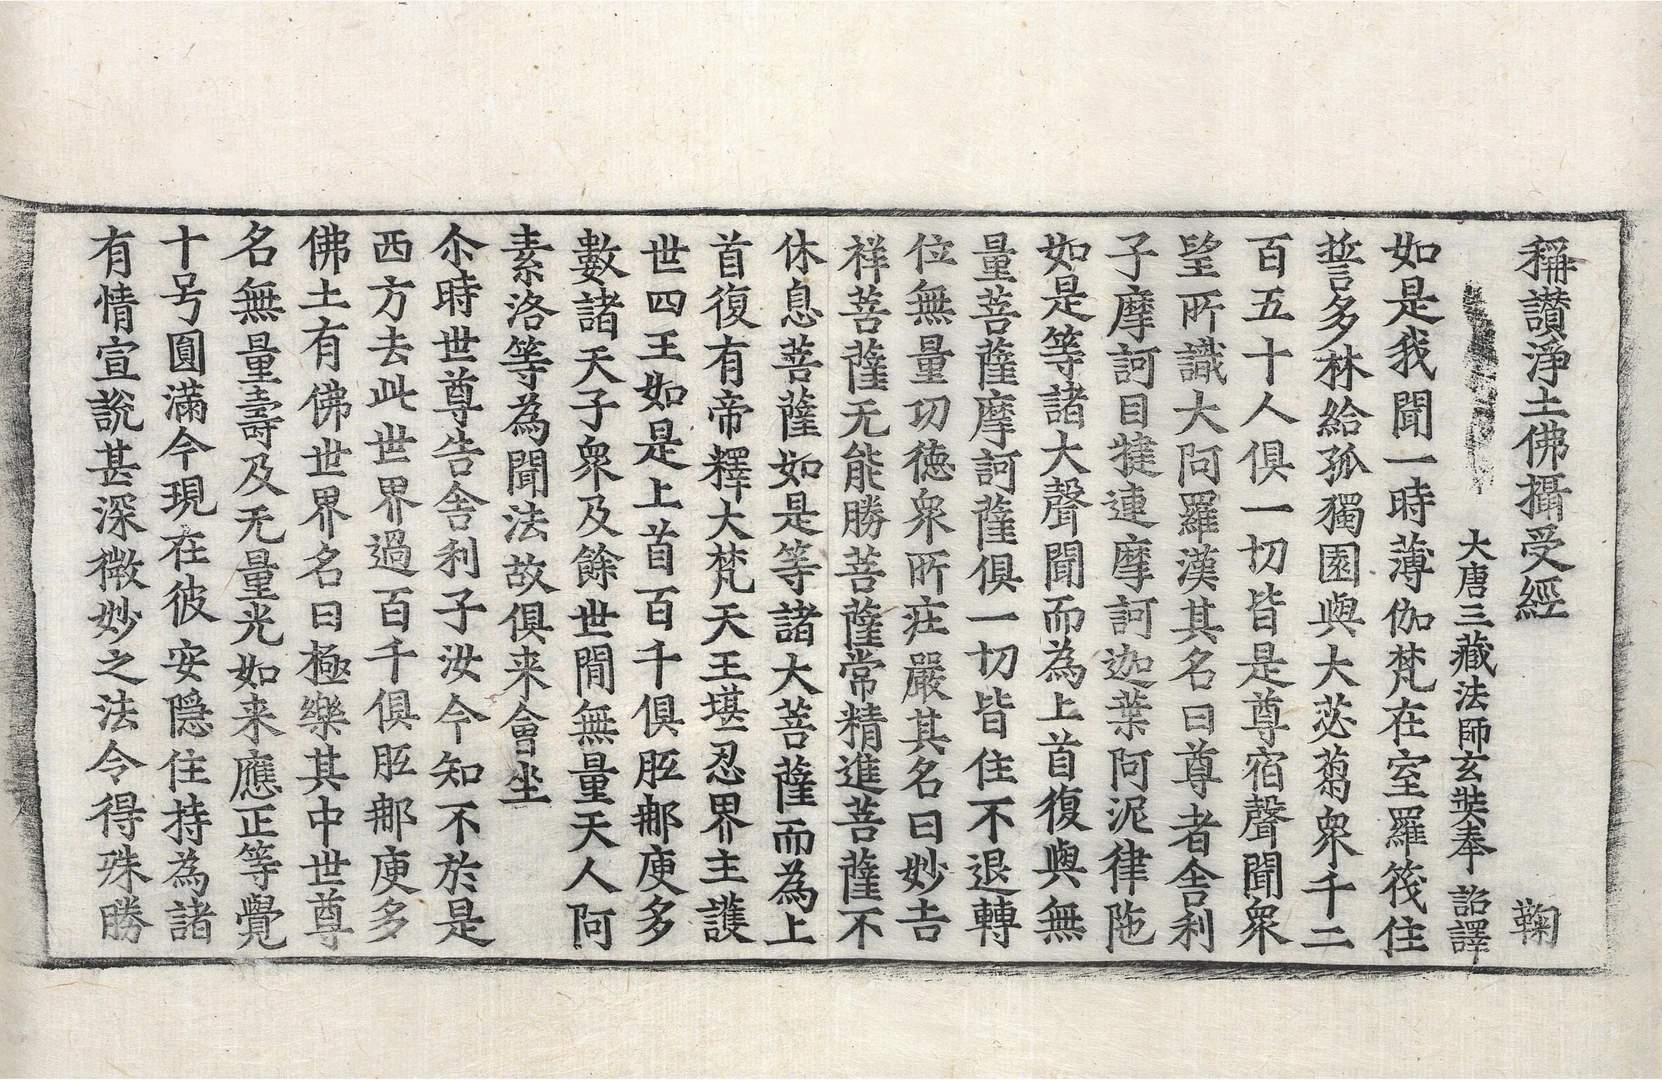 稱讃淨土佛攝受經 鞠
大唐三藏法師玄奘奉 詔譯
如是我聞一時薄伽梵在室羅筏住
誓多林給孤獨園與大苾蒭衆千二
百五十人俱一切皆是尊宿聲聞衆
望所識大阿羅漢其名曰尊者舍利
子摩訶目揵連摩訶迦葉阿泥律陁
如是等諸大聲聞而為上首復與無
量菩薩摩訶薩俱一切皆住不退轉
位無量功德衆所莊嚴其名曰妙吉
祥菩薩无能勝菩薩常精進菩薩不
休息菩薩如是等諸大菩薩而為上
首復有帝釋大梵天王堪忍界主護
世四王如是上首百千俱胝那庾多
數諸天子衆及餘世間無量天人阿
素洛等為聞法故俱来會坐
尒時世尊告舍利子汝今知不於是
西方去此世界過百千俱胝那庾多
佛土有佛世界名曰極樂其中世尊
名無量壽及无量光如来應正等覺
十号圓滿今現在彼安隱住持為諸
有情宣說甚深微妙之法令得殊勝